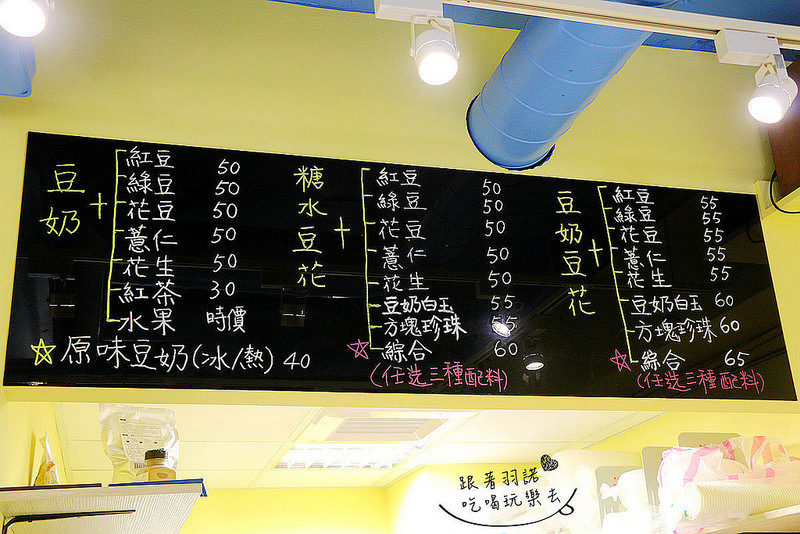 豆奶+
紅豆 50
綠豆 50
花豆 50
薏仁 50
花生 50
紅茶 30
水果 時價
☆原味豆奶(冰/熱) 40
糖水豆花+
紅豆 50
綠豆 50
花豆 50
薏仁 50
花生 50
豆奶白玉 55
方塊珍珠 55
☆綜合 60
(任选三種配料)
豆奶豆花+
紅豆 55
綠豆 55
花豆 55
薏仁 55
花生 55
豆奶白玉 60
方塊珍珠 60
☆綜合 65
(任选三種配料)
跟著羽諾
吃喝玩樂去